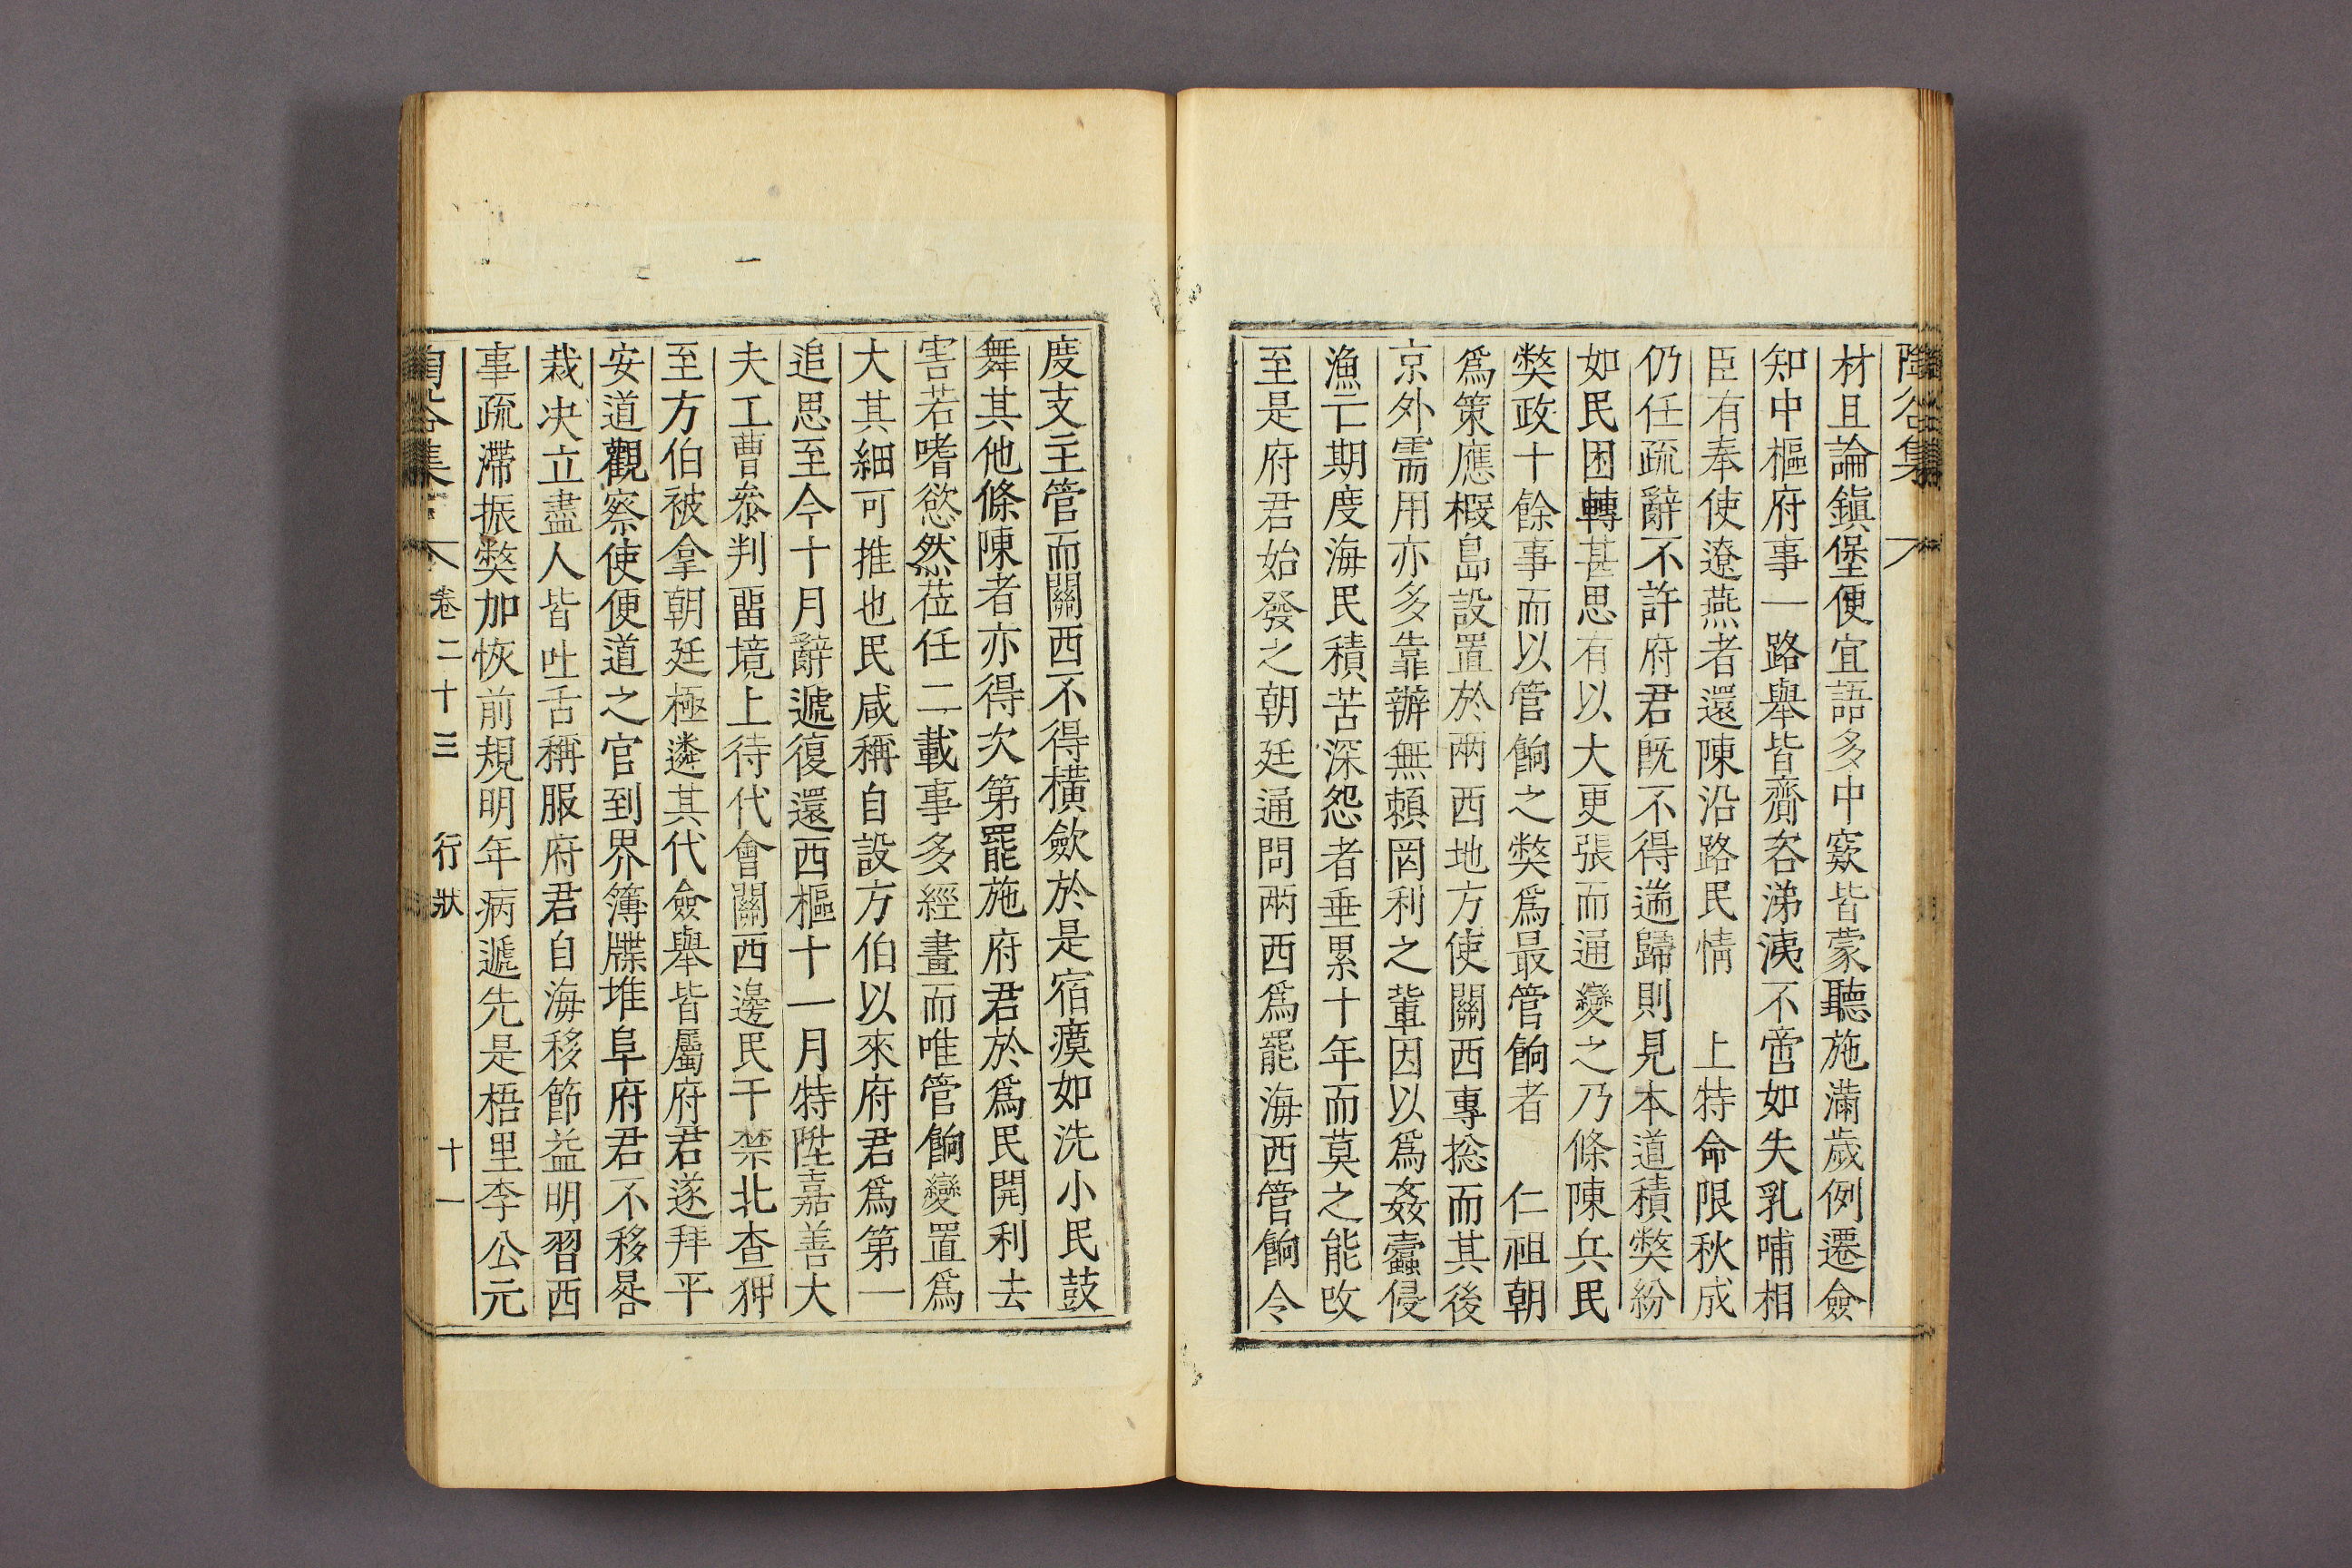 陶谷集
材且論鎭堡便宜語多中窾皆蒙聽施滿歲例遷僉
知中樞府事一路擧皆齊咨涕洟不啻如失乳哺相
臣有奉使遼燕者還陳沿路民情　上特命限秋成
仍任疏辭不許府君旣不得遄歸則見本道積弊紛
如民困轉甚思有以大更張而通變之乃條陳兵民
弊政十餘事而以管餉之弊爲最管餉者　仁祖朝
爲策應椵島設置於兩西地方使關西專捴而其後
京外需用亦多靠辦無賴罔利之輩因以爲姦蠧侵
漁亡期度海民積苦深怨者垂累十年而莫之能攺
至是府君始發之朝廷通問兩西爲罷海西管餉令
度支主管而關西不得橫斂於是宿瘼如洗小民鼓
舞其他條陳者亦得次第罷施府君於爲民開利去
害若嗜慾然莅任二載事多經畫而唯管餉變置爲
大其細可推也民咸稱自設方伯以來府君爲第一
追思至今十月辭遞復還西樞十一月特陞嘉善大
夫工曹叅判留境上待代會關西邊民干禁北査狎
至方伯被拿朝廷極遴其代僉擧皆屬府君遂拜平
安道觀察使便道之官到界簿牒堆阜府君不移晷
裁决立盡人皆吐舌稱服府君自海移節益明習西
事疏滯振弊加恢前規明年病遞先是梧里李公元
陶谷集
卷二十三　行狀　十一